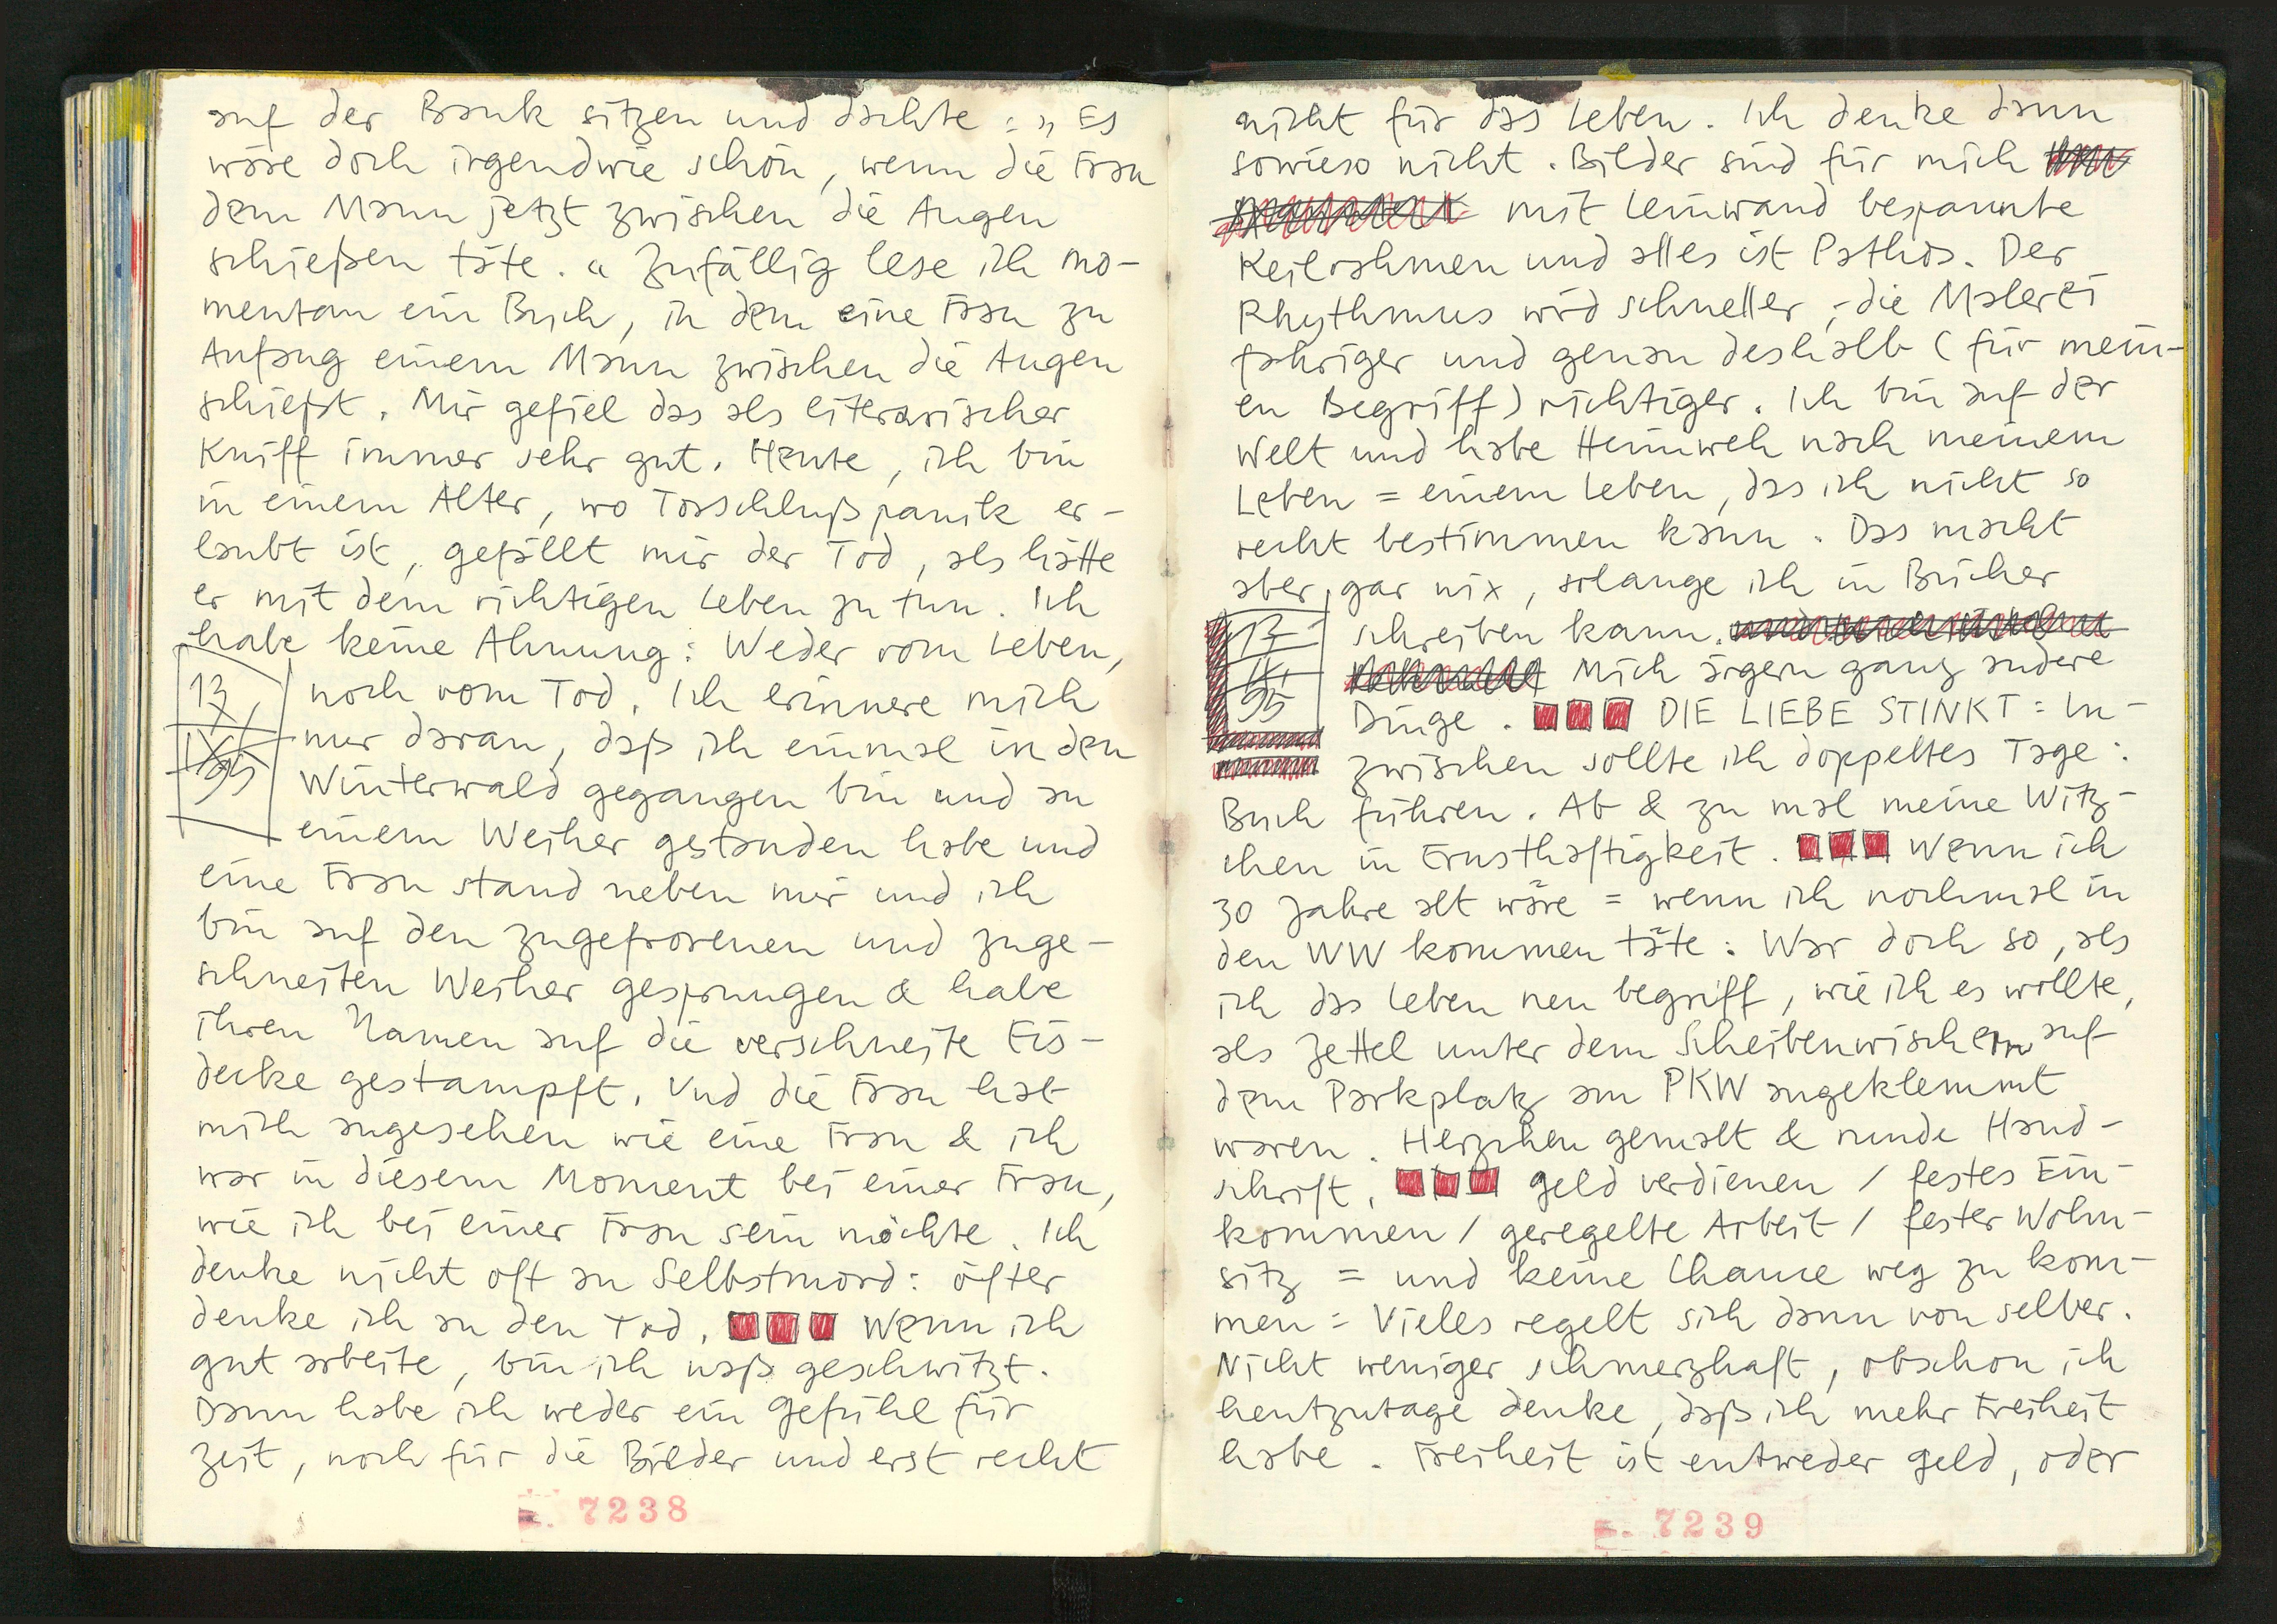 auf der Bank sitzen und dachte: „Es
wäre doch irgendwie schön, wenn die Frau
dem Mann jetzt zwischen die Augen
schießen täte.“ Zufällig lese ich mo-
mentan ein Buch, in dem eine Frau zu
Anfang einem Mann zwischen die Augen
schießt. Mir gefiel das als literarischer
Kniff immer sehr gut. Heute, ich bin
in einem Alter, wo Torschlußpanik er-
laubt ist, gefällt mir der Tod, als hätte
er mit dem richtigen Leben zu tun. Ich
habe keine Ahnung: Weder vom Leben,
noch vom Tod. Ich erinnere mich
nur daran, daß ich einmal in den
Winterwald gegangen bin und an
einem Weiher gestanden habe und
eine Frau stand neben mir und ich
bin auf den zugefrorenen und zuge-
schneiten Weiher gesprungen & habe
ihren Namen auf die verschneite Eis-
decke gestampft. Und die Frau hat
mich angesehen wie eine Frau & ich
war in diesem Moment bei einer Frau,
wie ich bei einer Frau sein möchte. Ich
denke nicht oft an Selbstmord: öfter
denke ich an den Tod. Wenn ich
gut arbeite, bin ich naß geschwitzt.
Dann habe ich weder ein Gefühl für
Zeit, noch für die Bilder und erst recht
13.
IX.
95
7238
nicht für das Leben. Ich denke dann
sowieso nicht. Bilder sind für mich
mit Leinwand bespannte
Keilrahmen und alles ist Pathos. Der
Rhythmus wird schneller, die Malerei
fahriger und genau deshalb (für mein-
en Begriff) richtiger. Ich bin auf der
Welt und habe Heimweh nach meinem
Leben = einem Leben, das ich nicht so
recht bestimmen kann. Das macht
aber gar nix, solange ich in Bücher
schreiben kann.
Mich ärgern ganz andere
Dinge. DIE LIEBE STINKT: In-
zwischen sollte ich doppeltes Tage:
Buch führen. Ab & zu mal meine Witz-
chen in Ernsthaftigkeit. Wenn ich
30 Jahre alt wäre = wenn ich nochmal in
den WW kommen täte: War doch so, als
ich das Leben neu begriff, wie ich es wollte,
als Zettel unter dem Scheibenwischern auf
dem Parkplatz am PKW angeklemmt
waren. Herzchen gemalt & runde Hand-
schrift. Geld verdienen / festes Ein-
kommen / geregelte Arbeit / fester Wohn-
sitz = und keine Chance weg zu kom-
men = Vieles regelt sich dann von selber.
Nicht weniger schmerzhaft, obschon ich
heutzutage denke, daß ich mehr Freiheit
habe. Freiheit ist entweder Geld, oder
13
IX.
95
7239